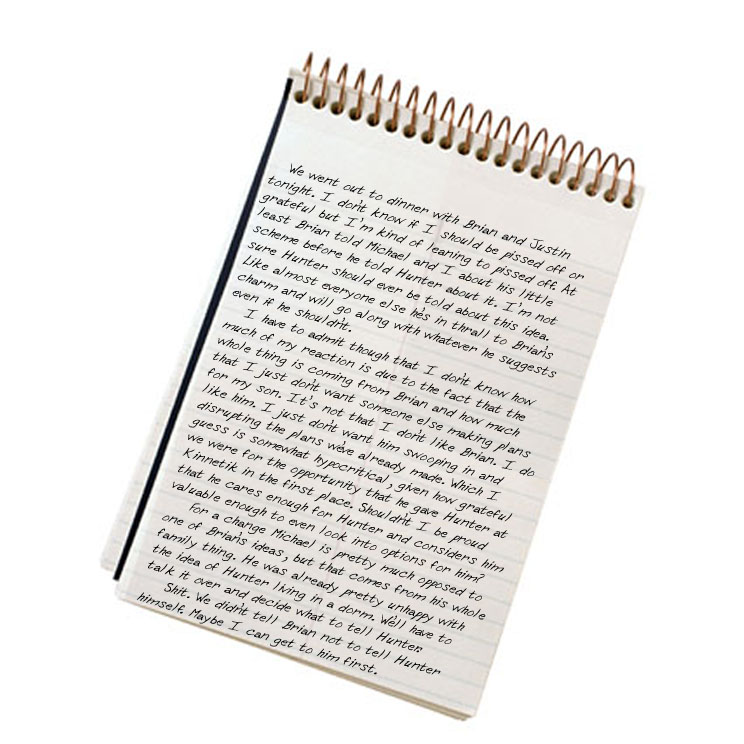 We went out to dinner with Brian and Justin
tonight. I don't know if I should be pissed off or
grateful but I'm kind of leaning to pissed off. At
least Brian told Michael and I about his little
scheme before he told Hunter about it. I'm not
sure Hunter should ever be told about this idea.
Like almost everyone else he's in thrall to Brian's
charm and will go along with whatever he suggests
even if he shouldn't.
I have to admit though that I don't know how
much of my reaction is due to the fact that the
whole thing is coming from Brian and how much
that I just don't want someone else making plans
for my son. It's not that I don't like Brian. I do
like him. I just don't want him swooping in and
disrupting the plans we've already made. Which I
guess is somewhat hypocritical, given how grateful
we were for the opportunity that he gave Hunter at
Kinnetik in the first place. Shouldn't I be proud
that he cares enough for Hunter and considers him
valuable enough to even look into options for him?
For a change Michael is pretty much opposed to
one of Brian's ideas, but that comes from his whole
family thing. He was already pretty unhappy with
the idea of Hunter living in a dorm. We'll have to
talk it over and decide what to tell Hunter.
Shit. We didn't tell Brian not to tell Hunter
himself. Maybe I can get to him first.